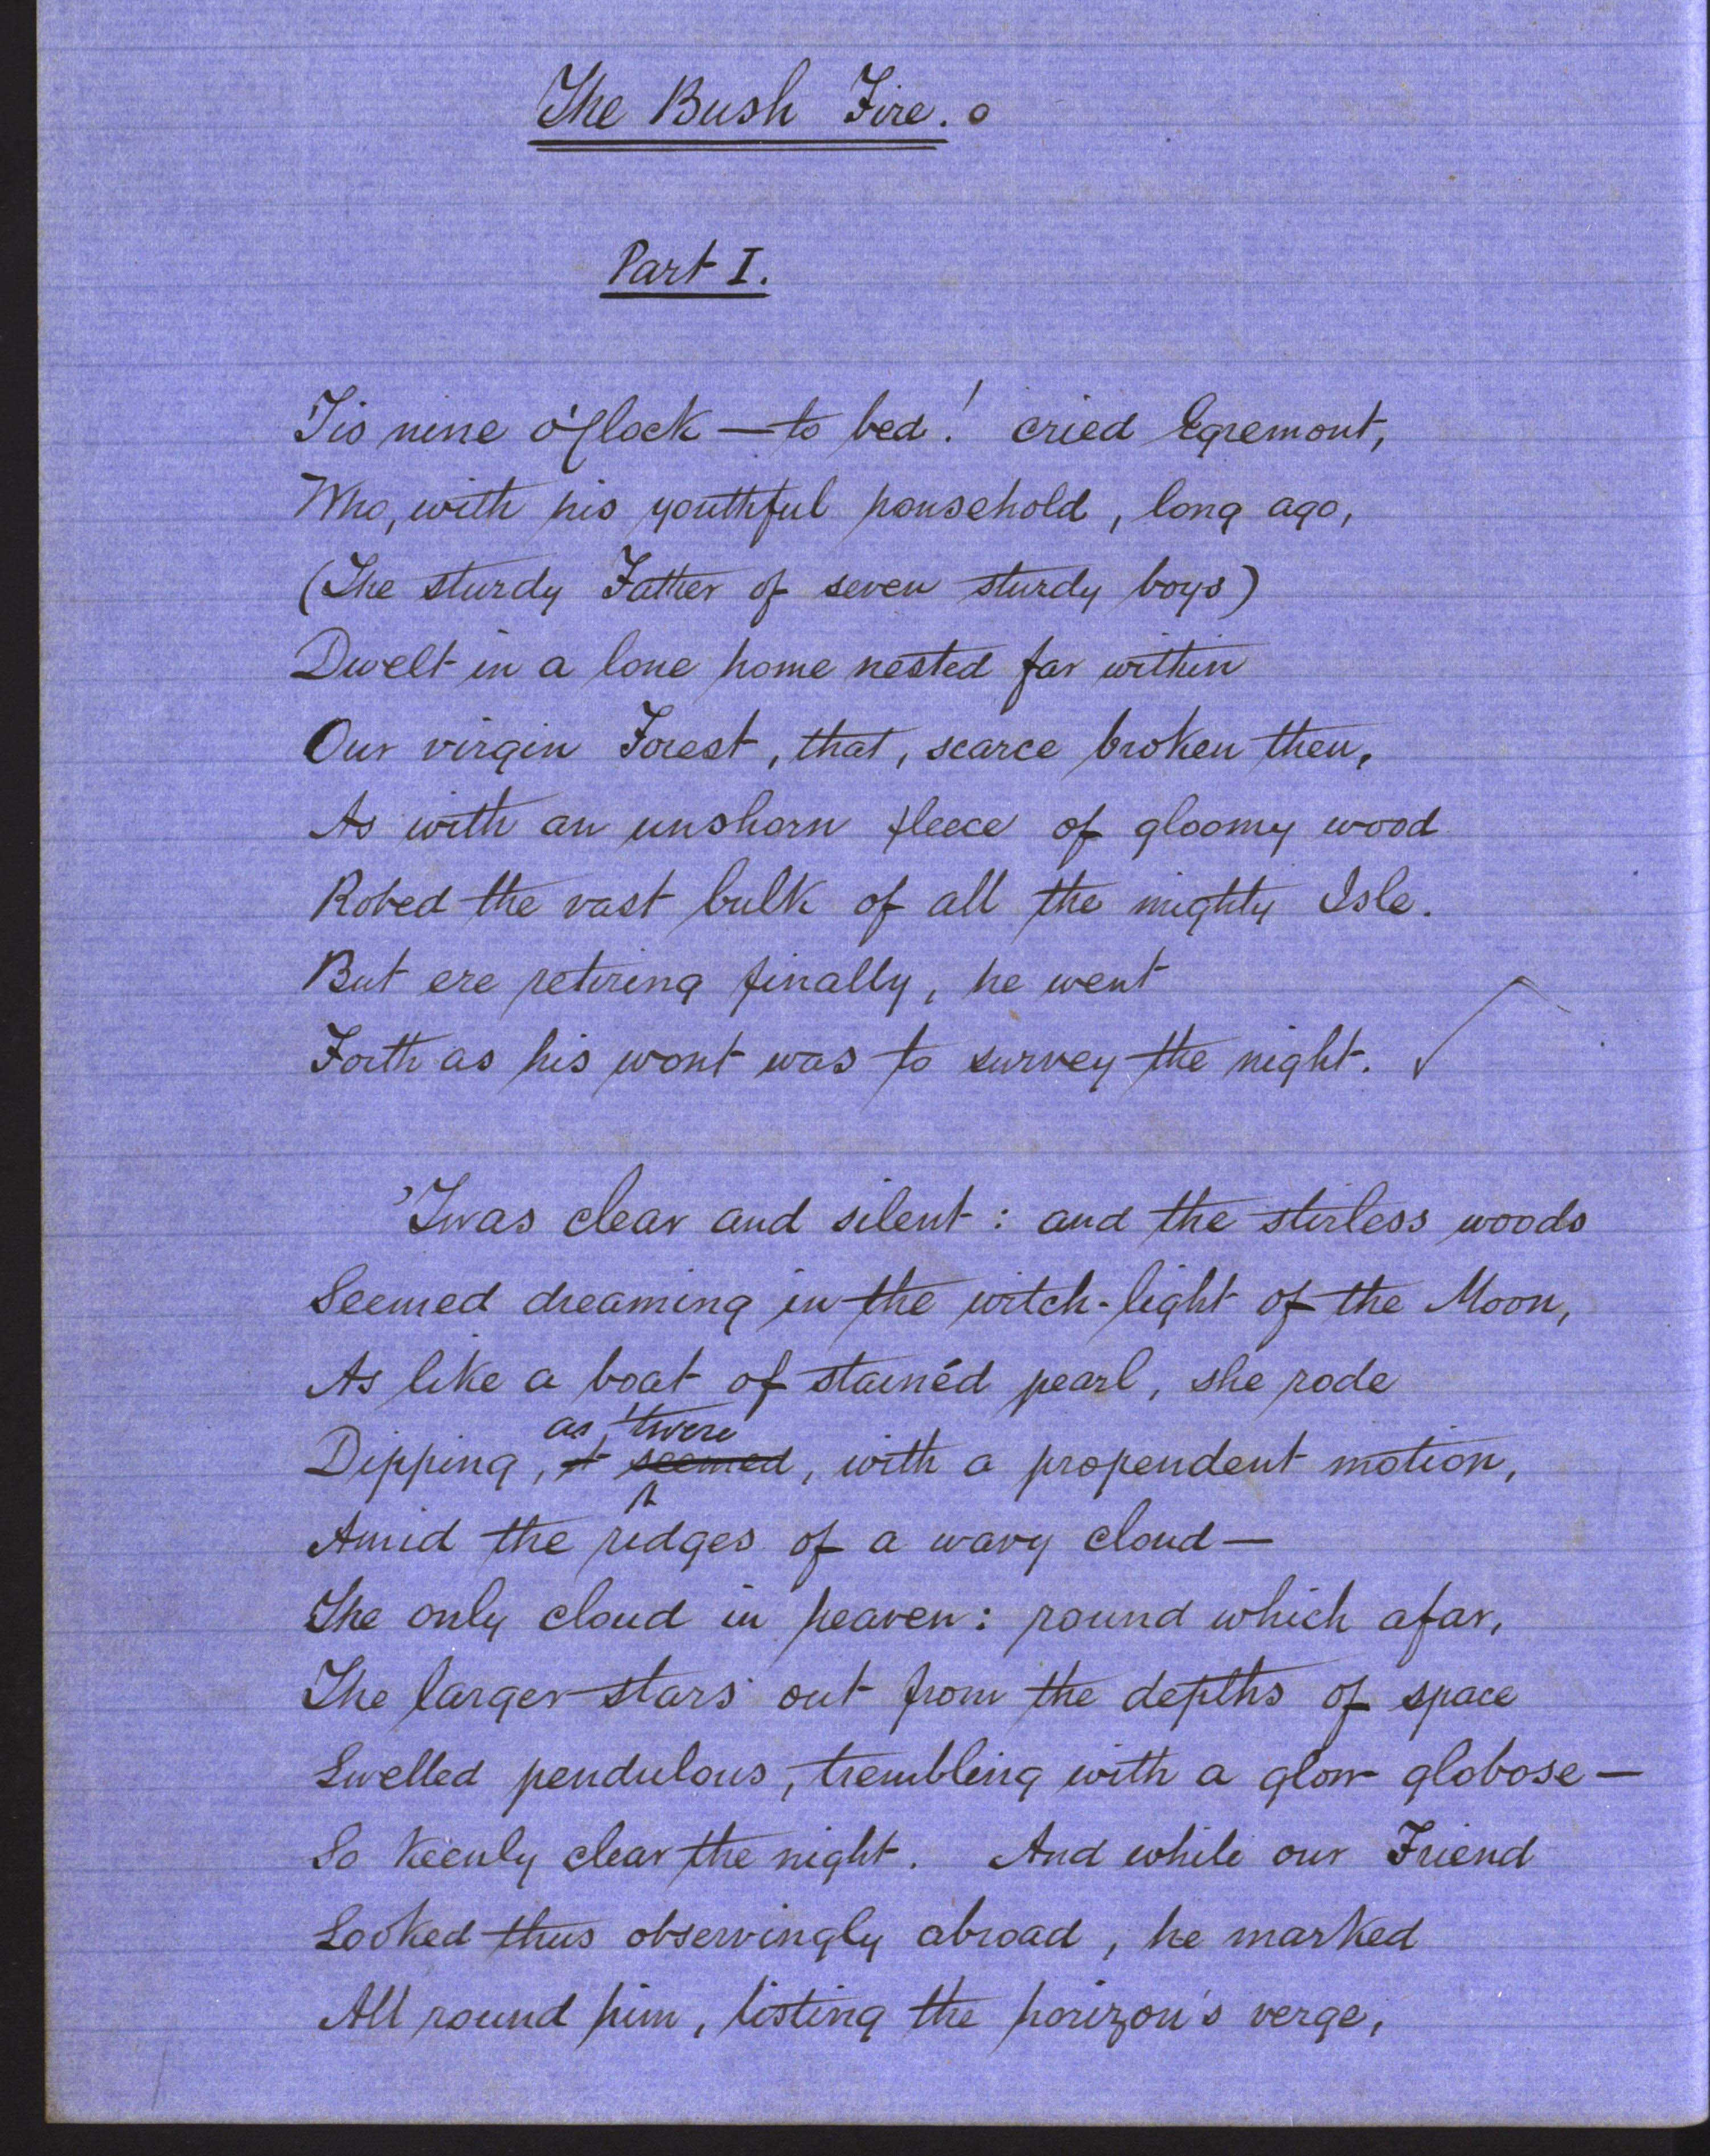 The Bush Fire.
Part I.
'Tis nine o'clock — to bed! cried Egremont,
Who, with his youthful household, long ago,
(The sturdy Father of seven sturdy boys)
Dwelt in a lone home nested far within
Our virgin Forest, that, scarce broken then,
As with an unshorn fleece of gloomy wood
Robed the vast bulk of all the mighty Isle.
But ere retiring finally, he went
Forth as his wont was to survey the night.
'Twas clear and silent: and the stirless woods
Seemed dreaming in the witch-light of the Moon,
As like a boat of stainéd pearl, she rode
as 'twere
Dipping, it seemed, with a propendent motion,
Amid the ridges of a wavy cloud —
The only cloud in heaven: round which afar,
The larger stars out from the depths of space
Swelled pendulous, trembling with a glow globose —
So keenly clear the night. And while our Friend
Looked thus observingly abroad, he marked
All round him, listing the horizon's verge,